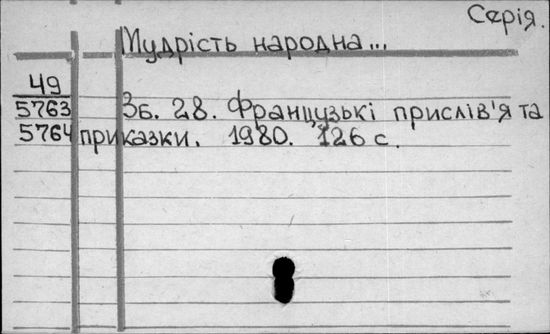 Серія.
Мудрість народна...
49
5763 Зб. 28. Французькі прислів'я та
5764 приказки. 1980. 126 с.